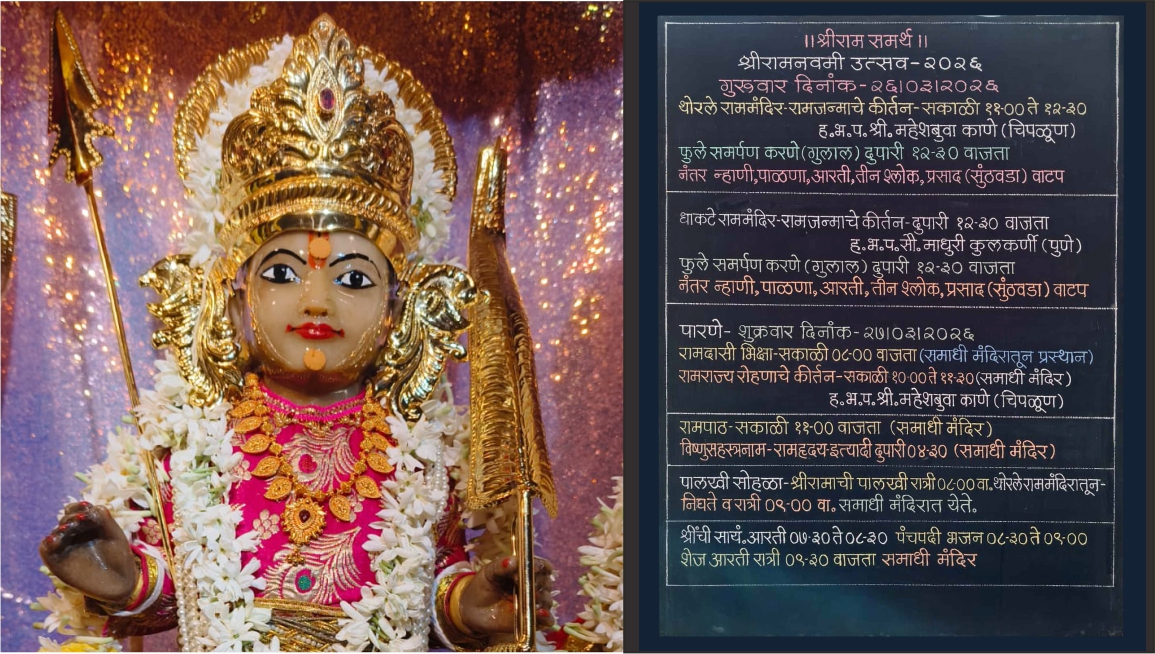 ।।श्रीराम समर्थ।।
श्रीरामनवमी उत्सव-२०२६
गुरुवार दिनांक-२६।०३।२०२६
थोरले राममंदिर-रामजन्माचे कीर्तन-सकाळी ११-०० ते १२-३०
ह.भ.प.श्री.महेशबुवा काणे (चिपळूण)
फुले समर्पण करणे(गुलाल) दुपारी १२-३० वाजता
नंतर न्हाणी,पाळणा,आरती,तीन श्लोक,प्रसाद (सुंठवडा) वाटप
धाकटे राममंदिर-रामजन्माचे कीर्तन-दुपारी १२-३० वाजता
ह.भ.प.सौ.माधुरी कुलकर्णी (पुणे)
फुले समर्पण करणे (गुलाल) दुपारी १२-३० वाजता
नंतर न्हाणी,पाळणा,आरती,तीन श्लोक,प्रसाद (सुंठवडा) वाटप
पारणे- शुक्रवार दिनांक-२७।०३।२०२६
रामदासी भिक्षा-सकाळी ०८-०० वाजता (समाधी मंदिरातून प्रस्थान)
रामराज्य रोहणाचे कीर्तन-सकाळी १०-०० ते ११-३०(समाधी मंदिर)
ह.भ.प.श्री.महेशबुवा काणे (चिपळूण)
रामपाठ-सकाळी ११-०० वाजता (समाधी मंदिर)
विष्णुसहस्त्रनाम-रामहृदय-इत्यादी दुपारी ०४-३० (समाधी मंदिर)
पालखी सोहळा-श्रीरामाची पालखी रात्री ०८-०० वा.थोरले राममंदिरातून-
निघते व रात्री ०९-०० वा. समाधी मंदिरात येते.
श्रींची सायं.आरती ०७-३० ते ०८-३० पंचपदी भजन ०८-३० ते ०९-००
शेज आरती रात्री ०९-३० वाजता समाधी मंदिर